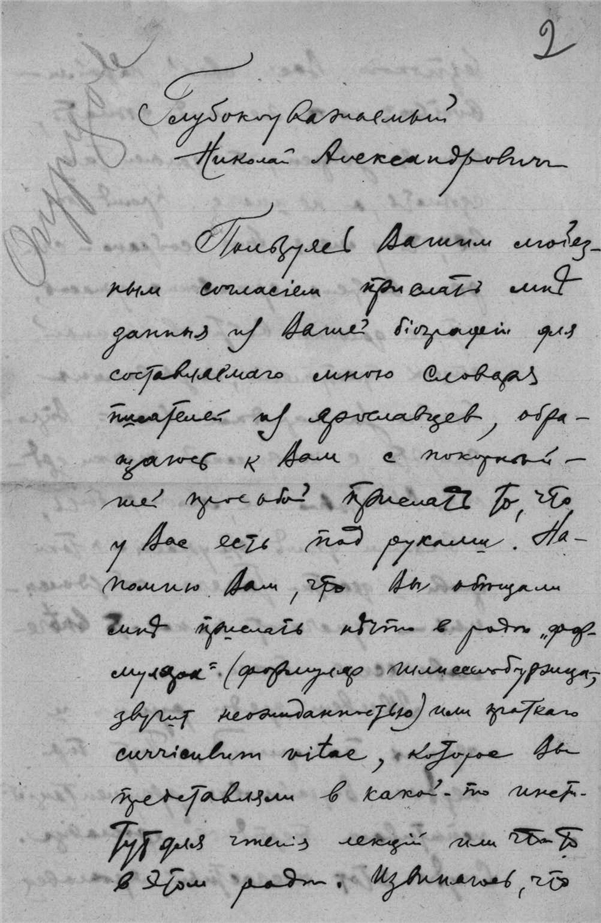 2
Глубокоуважаемый
Николай Александрович
Пользуясь Вашим любез-
ным согласіем прислать мнѣ
данныя из Вашей біографіи для
составляемаго мною словаря
писателей из ярославцев, обра-
щаюсь к Вам с покорнѣй-
шей просьбой прислать то, что
у Вас есть под руками. На-
помню Вам, что Вы обѣщали
мнѣ прислать нѣчто в родѣ „фор-
муляра“ (формуляр шлиссельбуржца,
звучит неожиданностью) или краткаго
curriculum vitae, которое Вы
представляли в какой-то инсти-
тут для чтенія лекцій или что-то
в этом родѣ. Извиняюсь, что